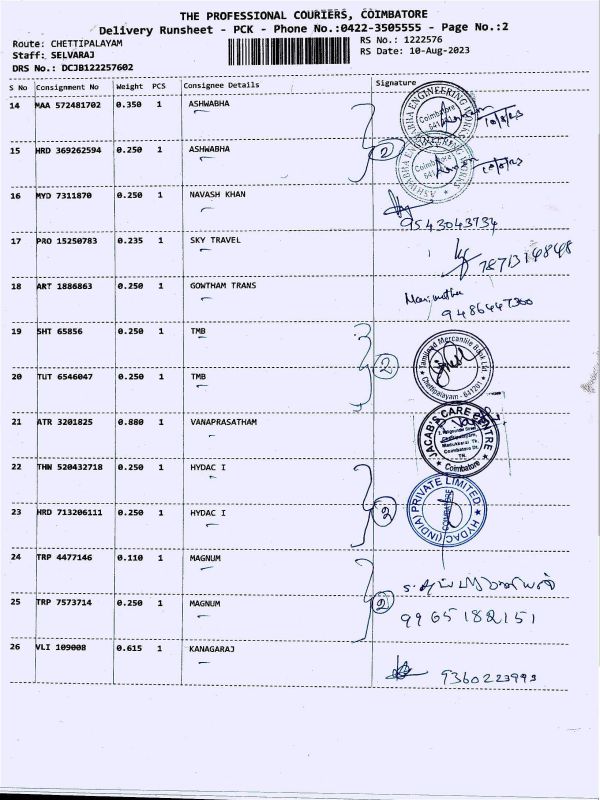 THE PROFESSIONAL COURIERS, COIMBATORE
Delivery Runsheet - PCK - Phone No.:0422-3505555 - Page No.:2
Route: CHETTIPALAYAM
RS No.: 1222576
Staff: SELVARAJ
RS Date: 10-Aug-2023
DRS No.: DCJB122257602
S No Consignment No Weight PCS Consignee Details Signature
14 MAA 572481702 0.350 1 ASHWABHA
10/8/23
15 HRD 369262594 0.250 1 ASHWABHA
2
10/8/23
16 MYD 7311870 0.250 1 NAVASH KHAN
9543043734
17 PRO 15250783 0.235 1 SKY TRAVEL
7871314848
18 ART 1886863 0.250 1 GOWTHAM TRANS
9486447300
19 SHT 65856 0.250 1 TMB
Tamilnad Mercantile Bank Ltd.
2
Chettipalayam - 641201
20 TUT 6546047 0.250 1 TMB
21 ATR 3201825 0.880 1 VANAPRASATHAM
JACAB'S CARE CENTRE
Coimbatore
22 THN 520432718 0.250 1 HYDAC I
HYDAC (INDIA) PRIVATE LIMITED
COIMBATORE
2
23 HRD 713206111 0.250 1 HYDAC I
24 TRP 4477146 0.110 1 MAGNUM
2
25 TRP 7573714 0.250 1 MAGNUM
9965182151
26 VLI 109008 0.615 1 KANAGARAJ
9360223993